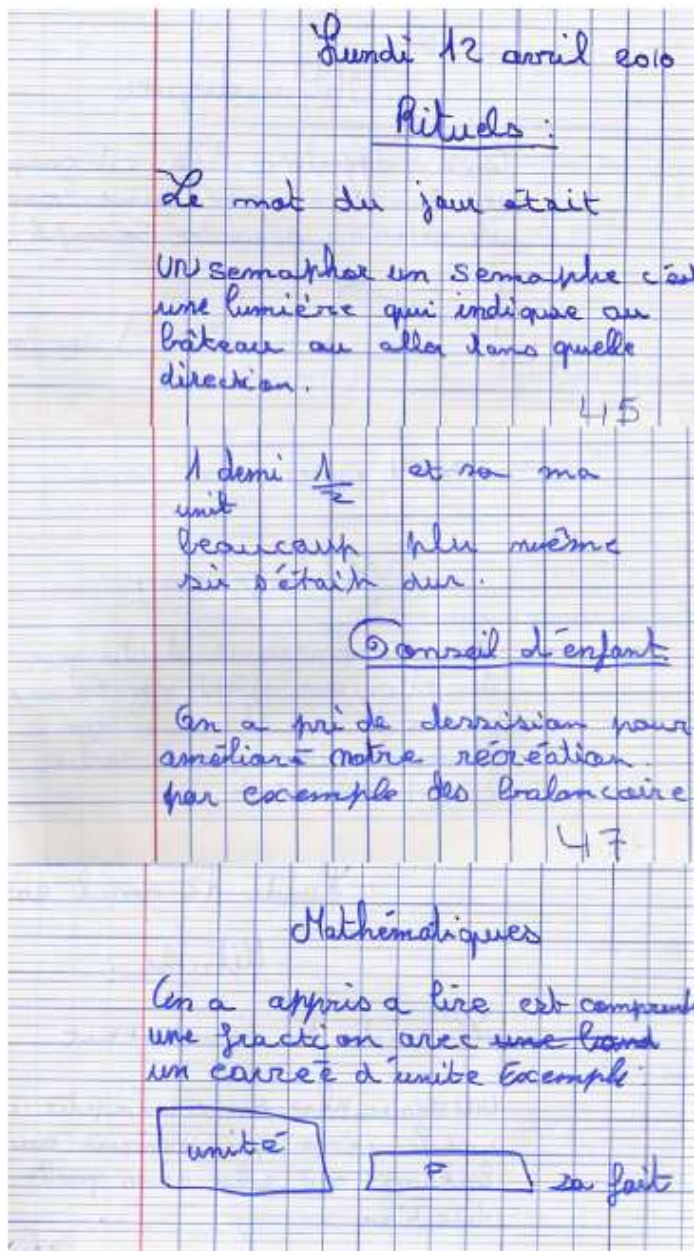 Lundi 12 avril 2010
Rituels :
Le mot du jour était
un semaphor un semaphe c'est
une lumière qui indique au
bâteau ou aller dans quelle
direction.
45
1 demi 1/2 et sa ma
unit
beaucoup plu même
si s'était dur.
Conseil d'enfant
On a pri de dessision pour
améliorè notre récréation.
par excemple des balancaire
47
Mathématiques
On a appris a lire est comprendre
une fraction avec une band
un carrée d'unite Excemple:
unité
F
sa fait